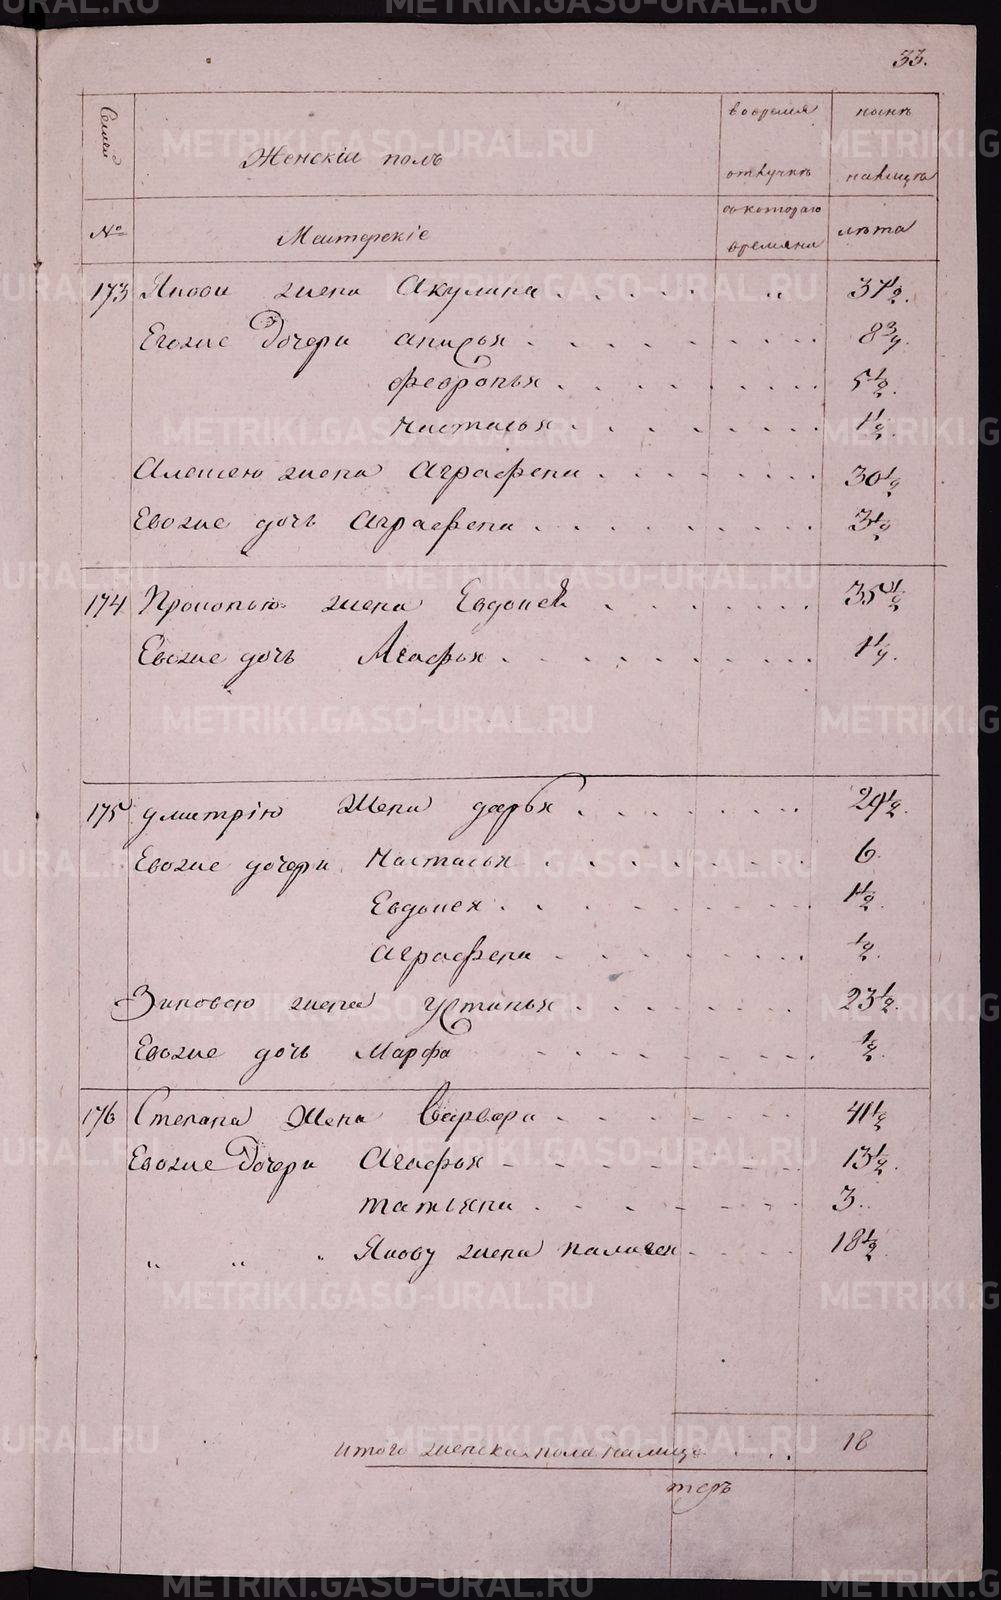 33.
Семей
Женскій полъ
во время
отлучкѣ
нынѣ
налицѣ
№
Мастерскіе
съ котораго
времяни
лѣта
173 Якова жена Акулина 37½.
Его же 3 дочери Анисья 8¾.
Февронья 5½.
Настасья 1½.
Алексею жена Аграфена 30½
Ево же дочь Аграфена 3½
174 Прокопью жена Евдокея 35½
Ево же дочь Агафья 1¼.
175 Дмитрію жена Дарья 29½.
Ево же дочери Настасья 6.
Евдокея 1½.
Аграфена ½.
Зиновею жена Устинья 23½.
Ево же дочь Марфа ½.
176 Степана жена Варвара 41½
Ево же 2 дочери Агафья 13½.
Татьяна 3.
„ „ Якову жена Палагея 18½
Итого женска пола налицо 18
теръ
METRIKI.GASO-URAL.RU